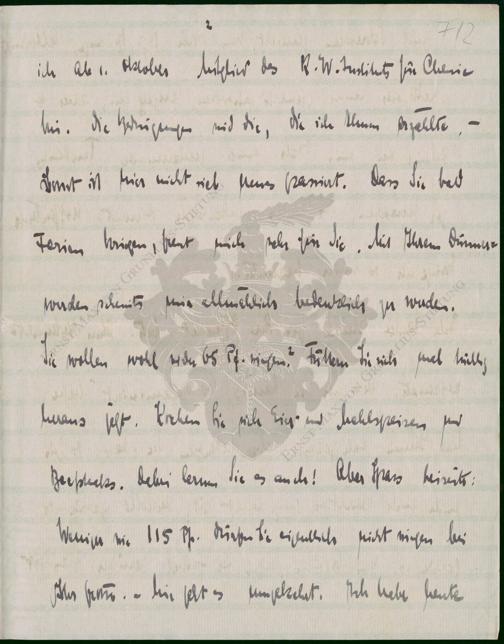 2
712
ich ab 1. Oktober Mitglied des K.-W.-Instituts für Chemie
bin. Die Bedingungen sind die, die ich Ihnen erzählte. –
Sonst ist hier nicht viel neues passiert. Dass Sie bald
Ferien kriegen, freut mich sehr für Sie. Mit Ihrem Dünner=
werden scheints mir allmählich bedenklich zu werden.
Sie wollen wohl nur 65 Pf. wiegen? Füttern Sie sich mal tüchtig
heraus jetzt. Kochen Sie sich Eier- und Mehlspeisen und
Beefsteaks. Dabei lernen Sie es auch! Aber Spass beiseite:
Weniger wie 115 Pf. dürfen Sie eigentlich nicht wiegen bei
Ihrer Grösse. – Mir geht es umgekehrt. Ich habe heute